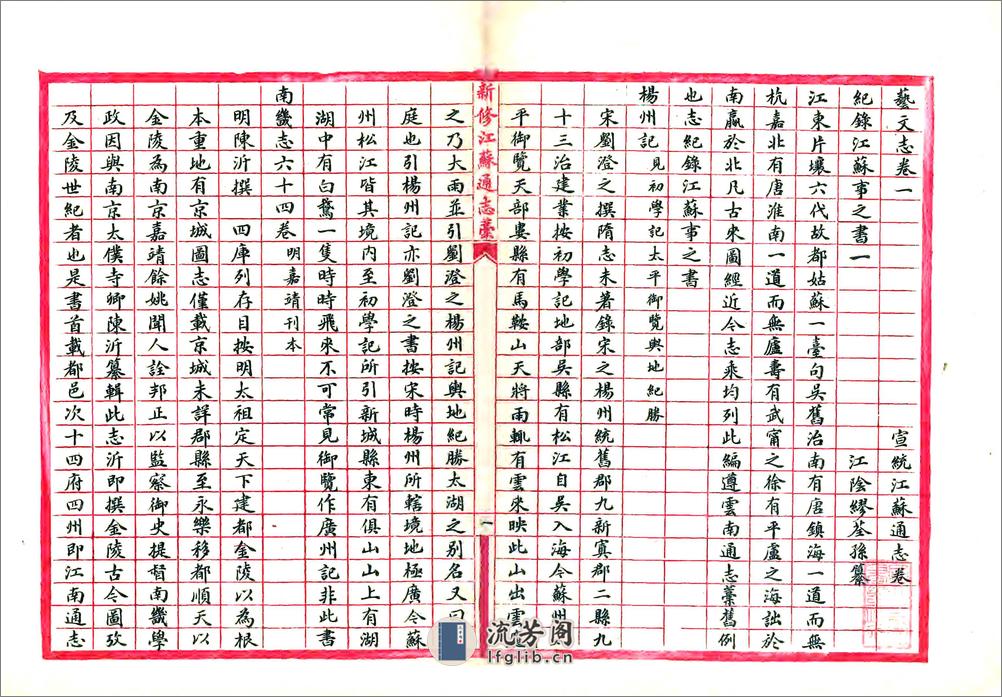 藝文志卷一　宣統江蘇通志卷
紀錄江蘇事之書一　江陰繆荃孫纂
江東片壤六代故都姑蘇一臺句吳舊治南有唐鎮海一道而無
杭嘉北有唐淮南一道而無廬壽有武甯之徐有平盧之海詘於
南贏於北凡古來圖經近今志乘均列此編遵雲南通志藁舊例
也志紀錄江蘇事之書
楊州記見初學記太平御覽輿地紀勝
宋劉澄之撰隋志未著錄宋之楊州統舊郡九新寘郡二縣九
十三治建業按初學記地部吳縣有松江自吳入海今蘇州
平御覽天部婁縣有馬鞍山天將雨輒有雲來映此山出雲
新修江蘇通志藁
一
之乃大雨並引劉澄之楊州記輿地紀勝太湖之別名又曰
庭也引楊州記亦劉澄之書按宋時楊州所轄境地極廣今蘇
州松江皆其境內至初學記所引新城縣東有俱山山上有湖
湖中有白鶩一隻時時飛來不可常見御覽作廣州記非此書
南畿志六十四卷明嘉靖刊本
明陳沂撰四庫列存目按明太祖定天下建都金陵以為根
本重地有京城圖志僅載京城未詳郡縣至永樂移都順天以
金陵為南京嘉靖餘姚聞人詮邦正以監察御史提督南畿學
政因與南京太僕寺卿陳沂纂輯此志沂即撰金陵古今圖攷
及金陵世紀者也是書首載都邑次十四府四州即江南通志
流芳閣
lfglib.cn